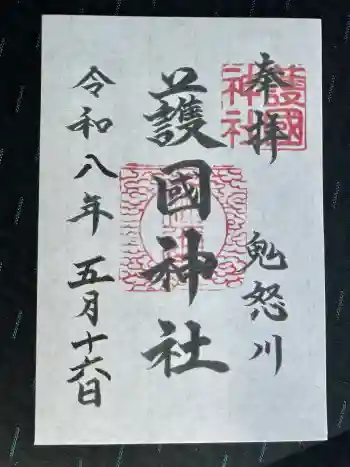 奉拝
護國神社
鬼怒川
護國神社
令和八年 五月十六日